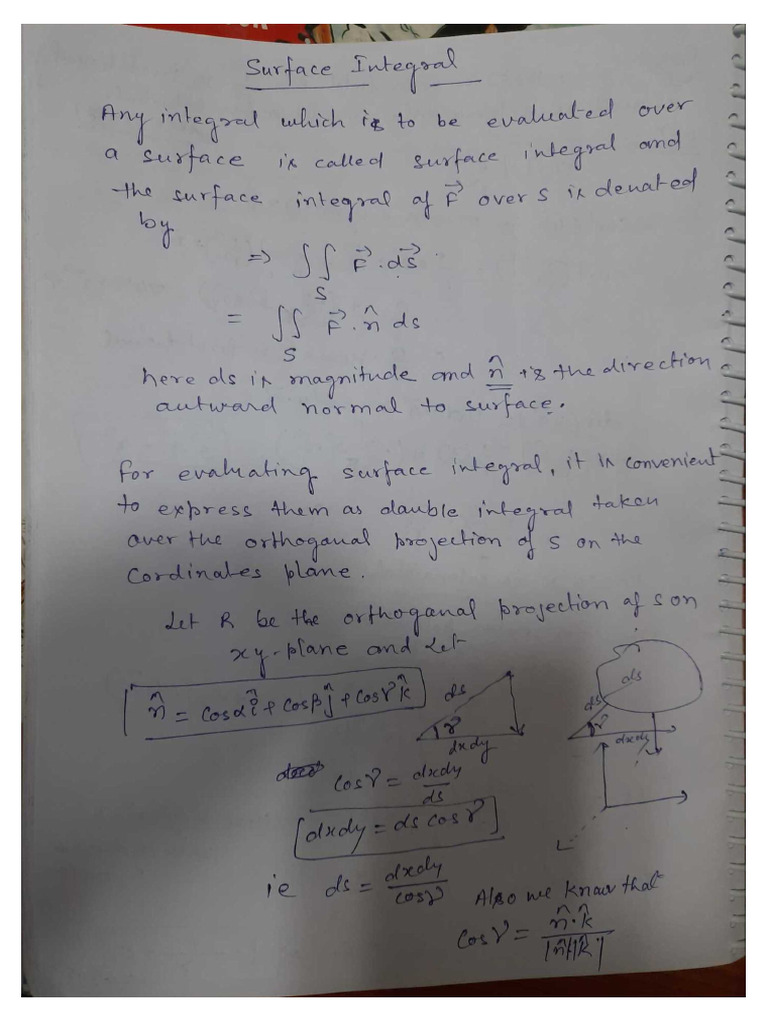 Surface Integral
Any integral which is to be evaluated over
a surface is called surface integral and
the surface integral of F⃗ over S is denoted
by
⇒ ∬_S F⃗ . ds⃗
= ∬_S F⃗ . n̂ ds
here ds is magnitude and n̂ is the direction
outward normal to surface.
For evaluating surface integral, it is convenient
to express them as double integral taken
over the orthogonal projection of S on the
Cordinates plane.
Let R be the orthogonal projection of S on
xy-plane and let
n̂ = cosα î + cosβ ĵ + cosγ k̂
ds
γ
dxdy
ds
ds
γ
dxdy
cosγ = dxdy/ds
[dxdy = ds cosγ]
ie ds = dxdy/cosγ Also we know that
cosγ = n̂.k̂/|n̂||k̂|